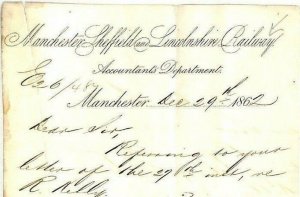 Manchester Sheffield and Lincolnshire Railway
Accountants Department.
E26/484
Manchester Dec 29th 1862
Dear Sir,
Referring to your
letter of the 29th inst, re
R. Kelly